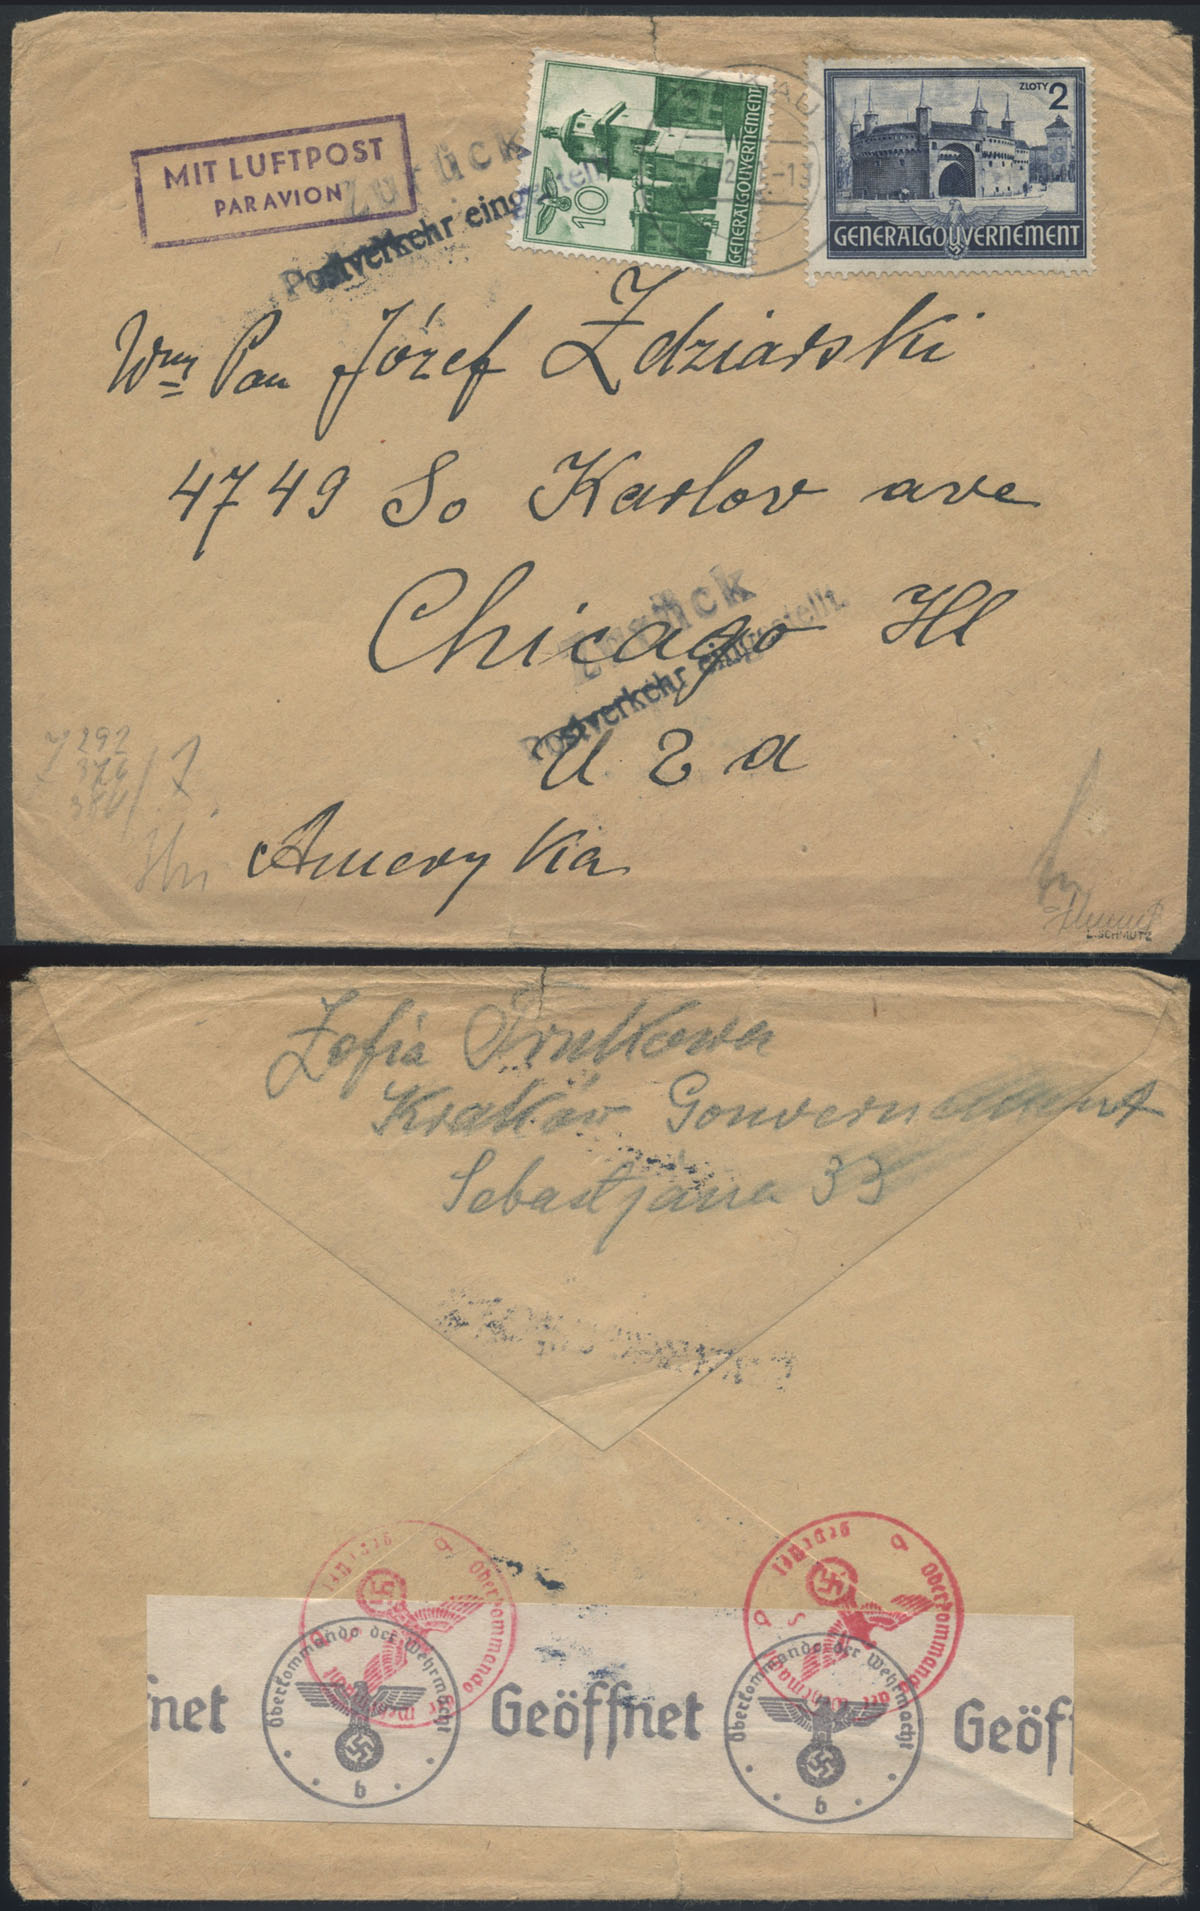 MIT LUFTPOST
PAR AVION
Zurück
Postverkehr eingestellt
10
GENERALGOUVERNEMENT
ZŁOTY 2
GENERALGOUVERNEMENT
Pan Józef Zdziarski
4749 So Karlov ave
Chicago Ill
Zurück
Postverkehr eingestellt.
U S a
Ameryka
292
L. SCHMUTZ
Zofia
Kraków Gouvernement
Sebastjana 33
Oberkommando der Wehrmacht
Oberkommando der Wehrmacht
ffnet
Oberkommando der Wehrmacht
b
Geöffnet
Oberkommando der Wehrmacht
b
Geöff